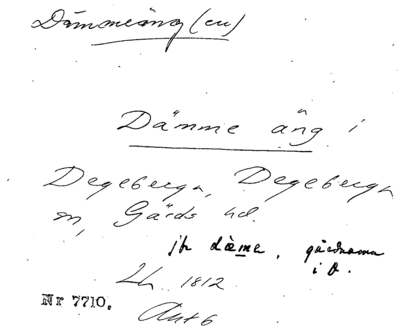 Dämmeäng (en)
Dämme äng i
Degeberga, Degeberga
sn, Gärds hd.
jfr däme, gårdnamn
i Ö.
1812
Nr 7710.